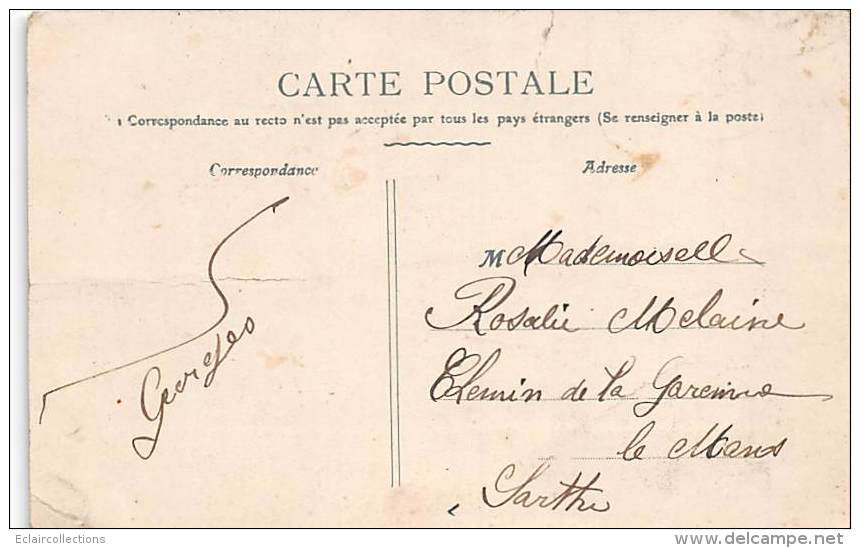 CARTE POSTALE
Correspondance au recto n'est pas acceptée par tous les pays étrangers (Se renseigner à la poste)
Correspondance
Adresse
M Mademoiselle
Rosalie Melaine
Chemin de la Garenne
le Mans
Sarthe
Georges
Eclaircollections
delcampe.net